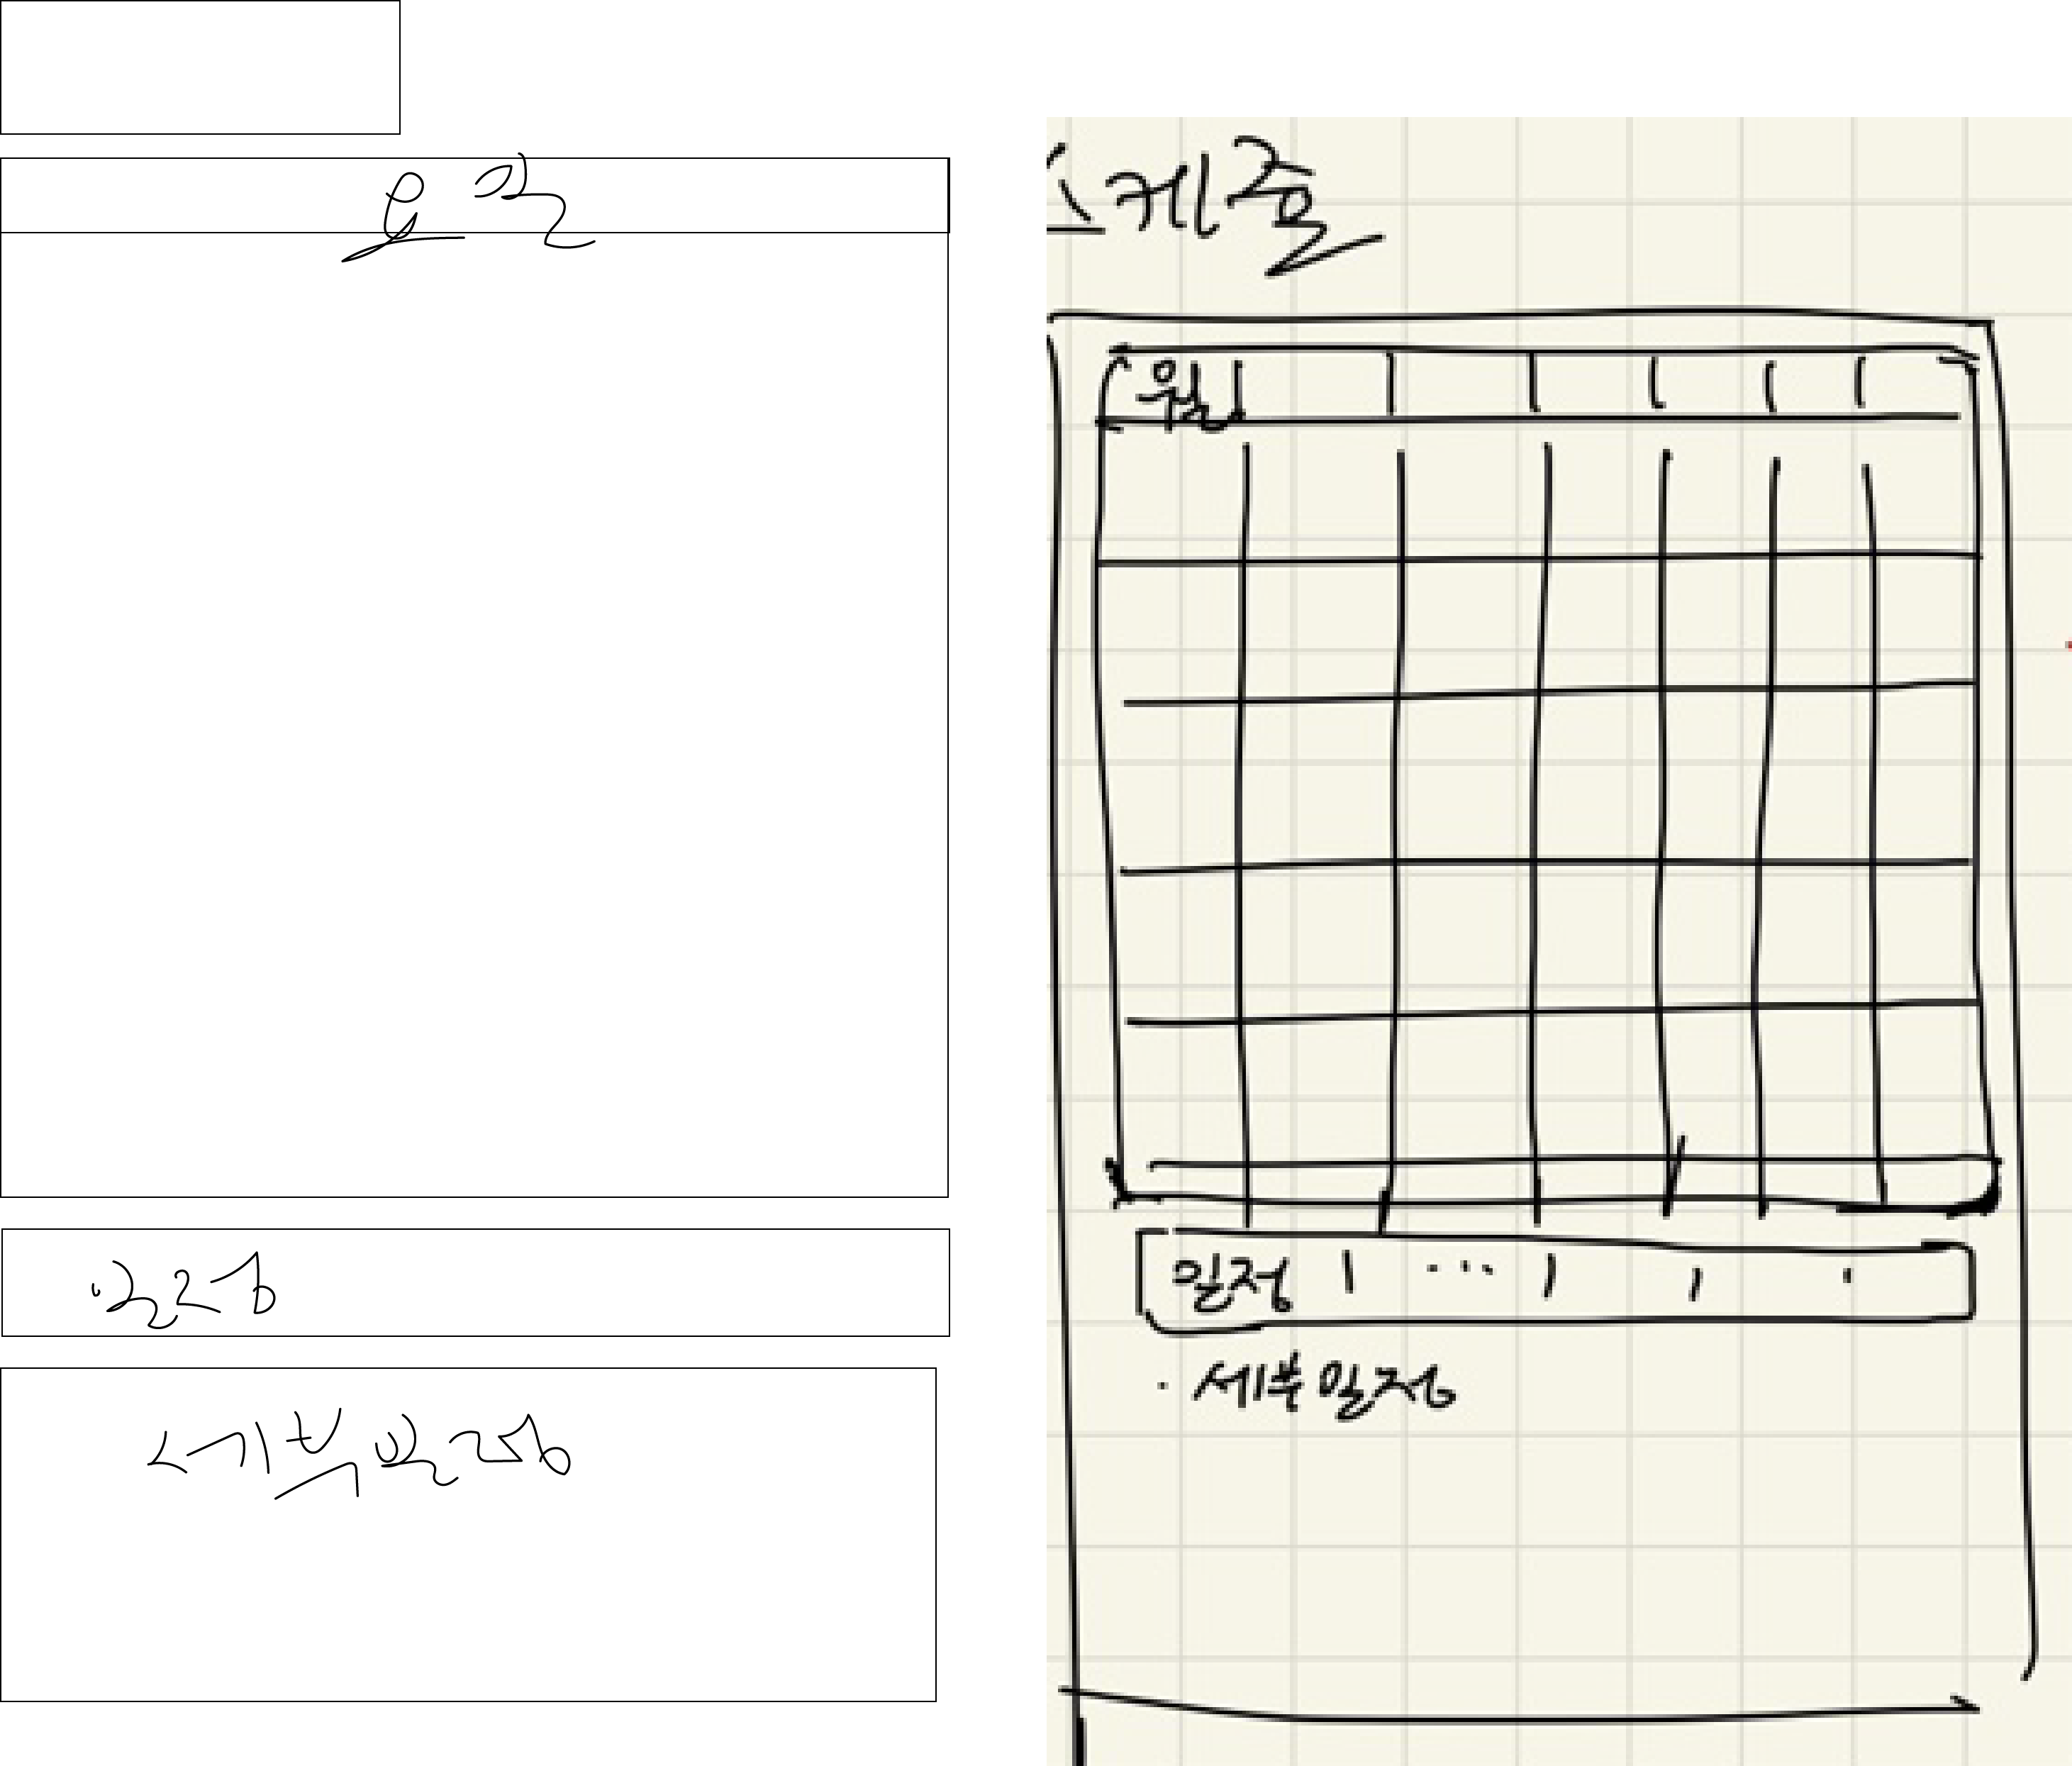 요일
일정
세부일정
스케줄
월
일정 | ... | | '
· 세부일정